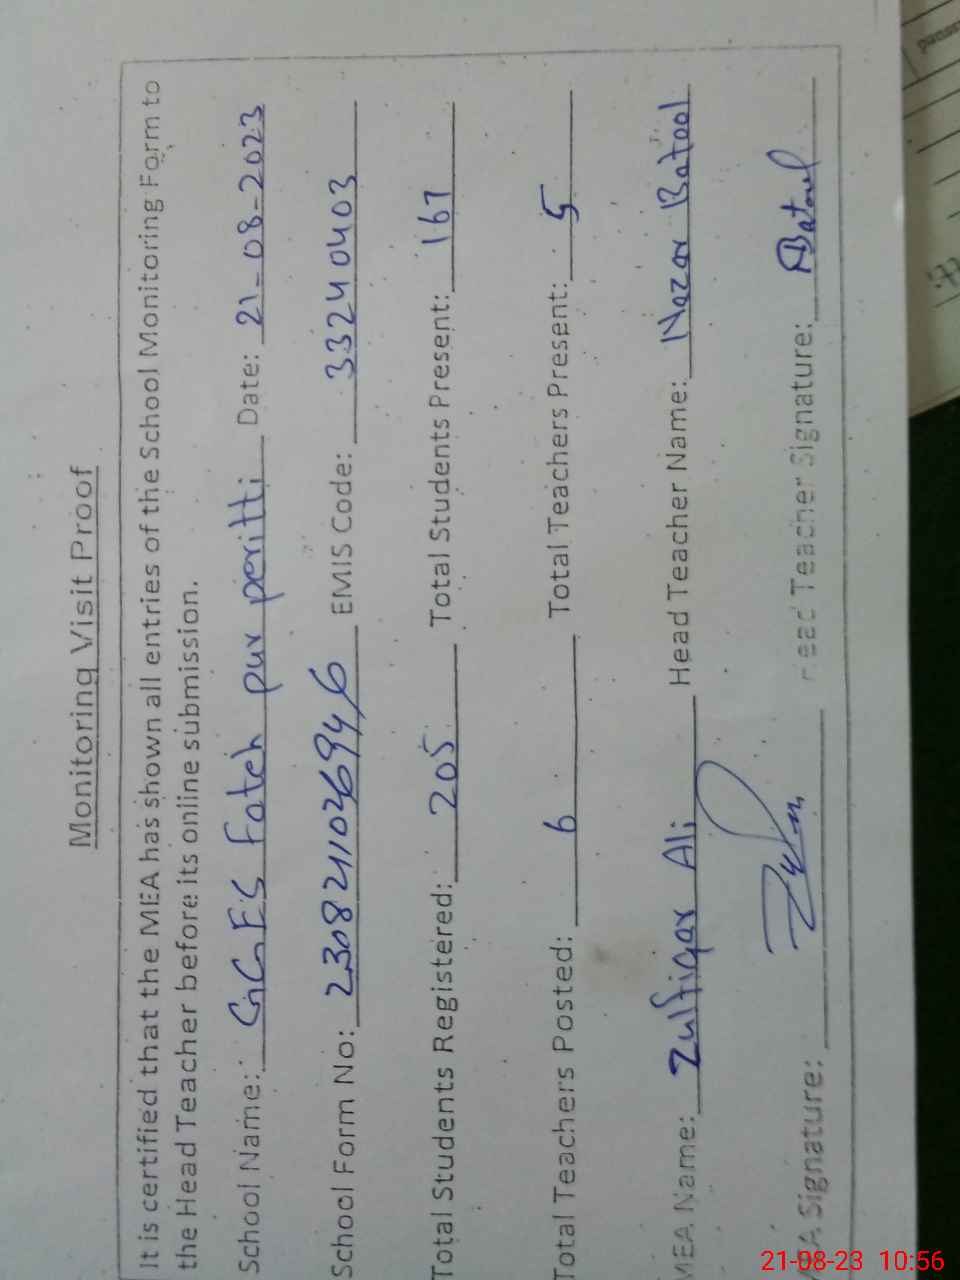 Monitoring Visit Proof
It is certified that the MEA has shown all entries of the School Monitoring Form to
the Head Teacher before its online submission.
School Name: GGES Fateh pur peritti Date: 21-08-2023
School Form No: 2308211026946 EMIS Code: 33240403
Total Students Registered: 205 Total Students Present: 167
Total Teachers Posted: 6 Total Teachers Present: 5
MEA Name: Zulfiqar Ali Head Teacher Name: Nazar Batool
MEA Signature: Head Teacher Signature: Batool
21-08-23 10:56